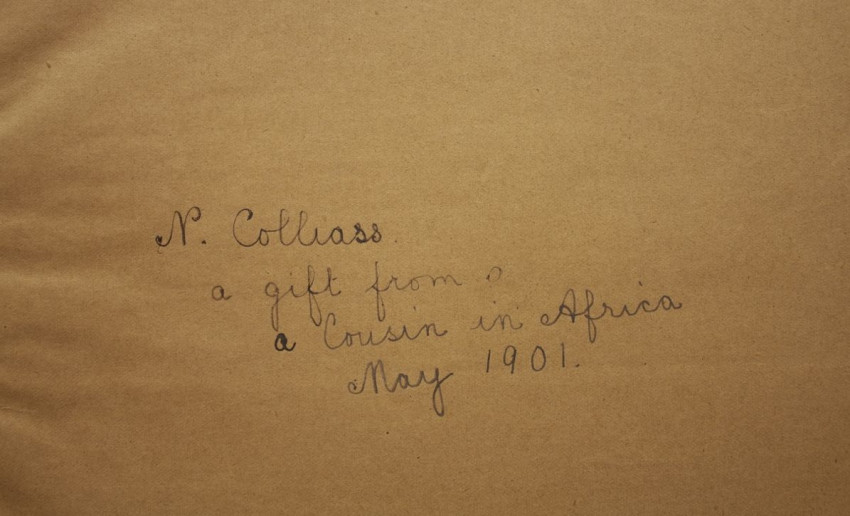 N. Colliass.
a gift from
a Cousin in Africa
May 1901.